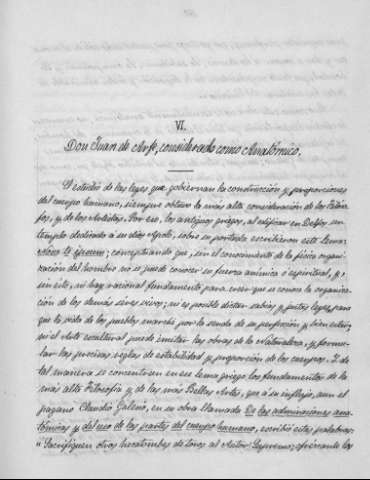 VI.
Don Juan de Arfe, considerado como Anatómico.
El estudio de las leyes que gobiernan la construcción y proporciones
del cuerpo humano, siempre obtuvo la más alta consideración de los Filóso-
fos, y de los Artistas. Por eso, los antiguos griegos, al edificar en Delfos un
templo dedicado á su dios Apolo, sobre su portada escribieron este lema:
Nosce te ipsum; conceptuando que, sin el conocimiento de la física organi-
zación del hombre no se puede conocer su fuerza anímica ó espiritual, y,
sin esto, ni hay racional fundamento para creer que se conoce la organiza-
ción de los demás séres vivos; ni es posible dictar sabias y justas leyes, para
que la vida de los pueblos marche por la senda de su perfección y bienestar;
ni el Arte escultural puede imitar las obras de la Naturaleza, y formu-
lar las precisas reglas de estabilidad y proporción de los cuerpos. I de
tal manera se concentran en ese lema griego los fundamentos de la
más alta Filosofía y de las más Bellas Artes, que á su influjo, aun el
pagano Claudio Galeno, en su obra llamada De las admiraciones ana-
tómicas y del uso de las partes del cuerpo humano, escribió estas palabras:
"Sacrifiquen otros hecatombes de toros al Autor Supremo; ofrézcanle los